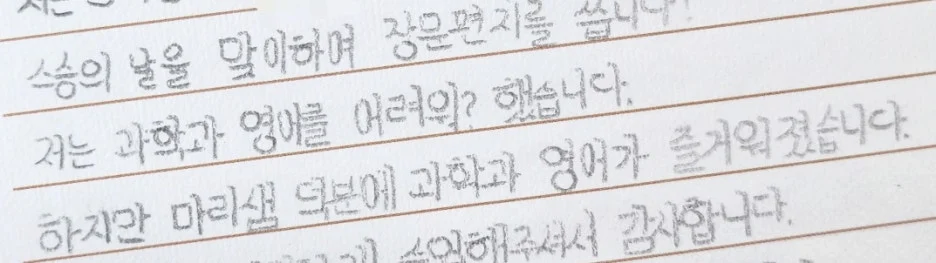 스승의 날을 맞이하여 장문편지를 씁니다!
저는 과학과 영어를 어려워? 했습니다.
하지만 마리샘 덕분에 과학과 영어가 즐거워졌습니다.
수업해주셔서 감사합니다.